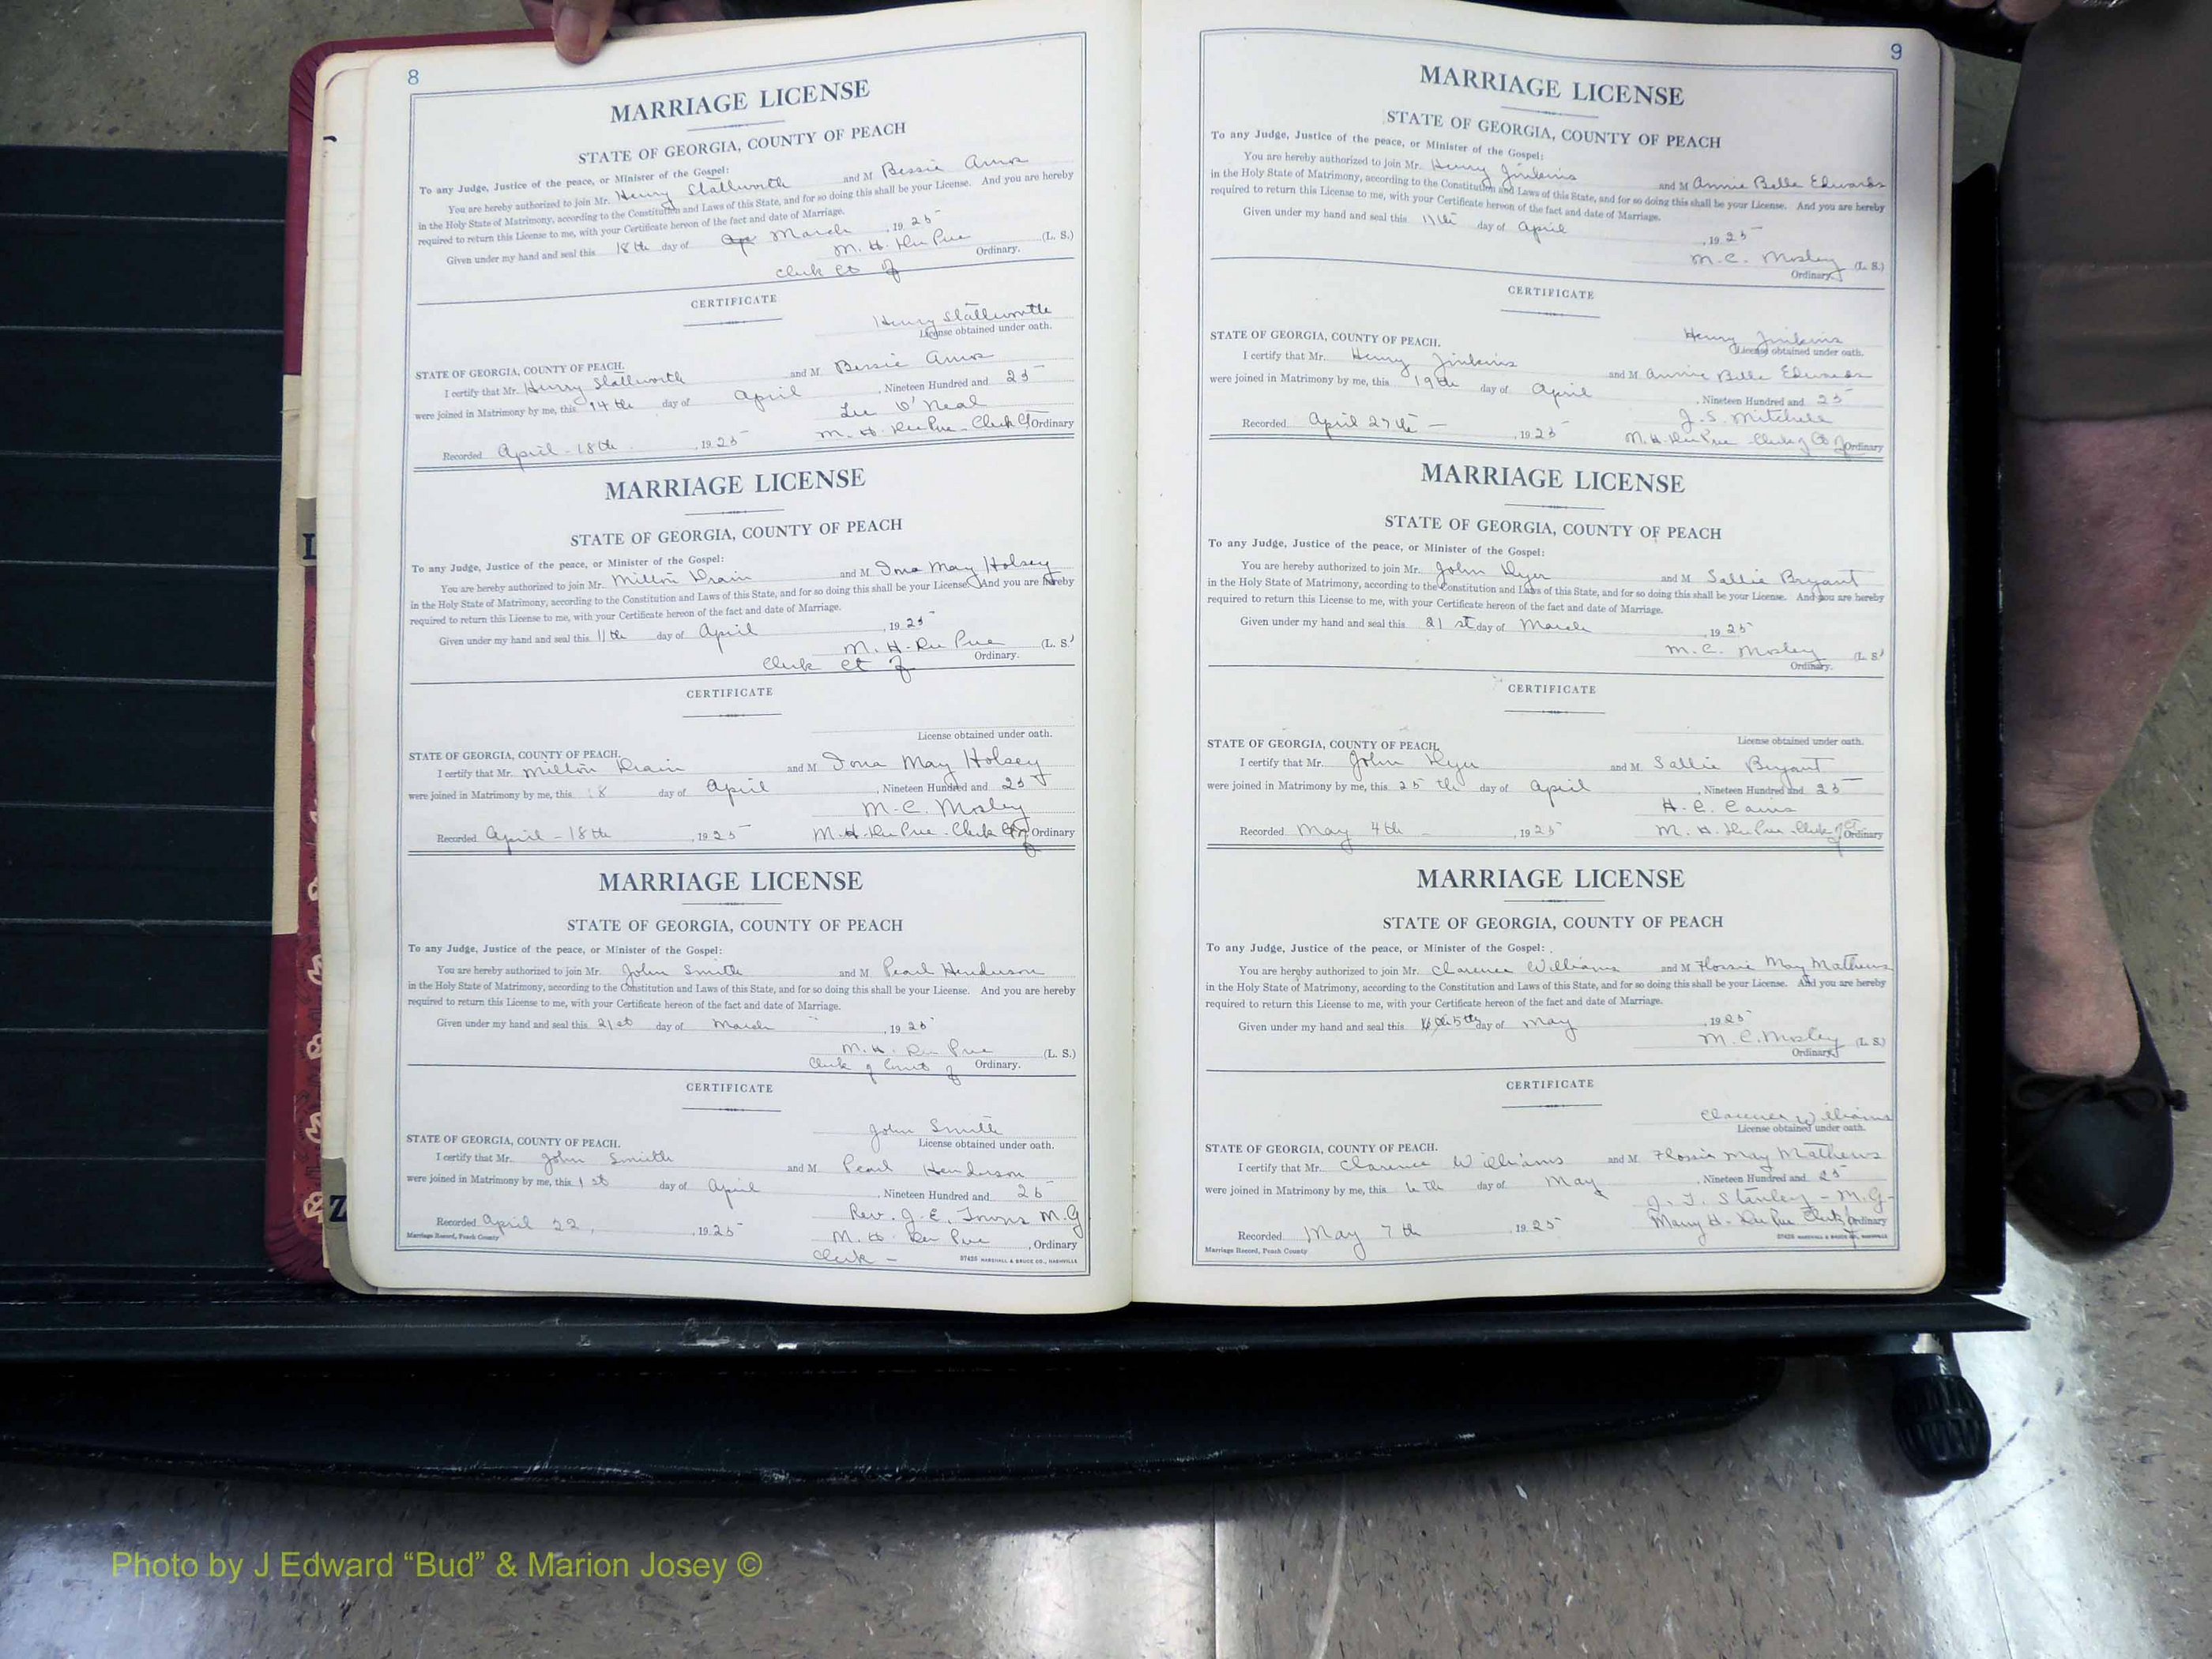 8
MARRIAGE LICENSE
STATE OF GEORGIA, COUNTY OF PEACH
To any Judge, Justice of the peace, or Minister of the Gospel:
You are hereby authorized to join Mr. Henry Stallworth and M Bessie Amos
in the Holy State of Matrimony, according to the Constitution and Laws of this State, and for so doing this shall be your License. And you are hereby
required to return this License to me, with your Certificate hereon of the fact and date of Marriage.
Given under my hand and seal this 18th day of March, 1925
M. H. (L. S.)
Ordinary.
Clerk
CERTIFICATE
Henry Stallworth
License obtained under oath.
STATE OF GEORGIA, COUNTY OF PEACH.
I certify that Mr. Henry Stallworth and M Bessie Amos
were joined in Matrimony by me, this 14th day of April, Nineteen Hundred and 25
Lee O'Neal
Recorded April - 18th, 1925 M. H. Clerk Ordinary
MARRIAGE LICENSE
STATE OF GEORGIA, COUNTY OF PEACH
To any Judge, Justice of the peace, or Minister of the Gospel:
You are hereby authorized to join Mr. Milton and M Iona May Holsey
in the Holy State of Matrimony, according to the Constitution and Laws of this State, and for so doing this shall be your License. And you are hereby
required to return this License to me, with your Certificate hereon of the fact and date of Marriage.
Given under my hand and seal this 11th day of April, 1925
M. H. (L. S.)
Clerk Ct Ordinary.
CERTIFICATE
License obtained under oath.
STATE OF GEORGIA, COUNTY OF PEACH.
I certify that Mr. Milton and M Iona May Holsey
were joined in Matrimony by me, this 18 day of April, Nineteen Hundred and 25
M. C. Mosley
Recorded April - 18th, 1925 M. H. Clerk Ordinary
MARRIAGE LICENSE
STATE OF GEORGIA, COUNTY OF PEACH
To any Judge, Justice of the peace, or Minister of the Gospel:
You are hereby authorized to join Mr. John Smith and M Pearl Henderson
in the Holy State of Matrimony, according to the Constitution and Laws of this State, and for so doing this shall be your License. And you are hereby
required to return this License to me, with your Certificate hereon of the fact and date of Marriage.
Given under my hand and seal this 21st day of March, 1925
M. H. (L. S.)
Clerk of Court Ordinary.
CERTIFICATE
John Smith
License obtained under oath.
STATE OF GEORGIA, COUNTY OF PEACH.
I certify that Mr. John Smith and M Pearl Henderson
were joined in Matrimony by me, this 1st day of April, Nineteen Hundred and 25
Rev. J. E. M.G
Recorded April 22, 1925 M. H. , Ordinary
Marriage Record, Peach County Clerk - 57425 MARSHALL & BRUCE CO., NASHVILLE
9
MARRIAGE LICENSE
STATE OF GEORGIA, COUNTY OF PEACH
To any Judge, Justice of the peace, or Minister of the Gospel:
You are hereby authorized to join Mr. Henry Jinkins and M Annie Belle Edwards
in the Holy State of Matrimony, according to the Constitution and Laws of this State, and for so doing this shall be your License. And you are hereby
required to return this License to me, with your Certificate hereon of the fact and date of Marriage.
Given under my hand and seal this 11th day of April, 1925
M. C. Mosley (L. S.)
Ordinary.
CERTIFICATE
Henry Jinkins
License obtained under oath.
STATE OF GEORGIA, COUNTY OF PEACH.
I certify that Mr. Henry Jinkins and M Annie Belle Edwards
were joined in Matrimony by me, this 19th day of April, Nineteen Hundred and 25
J. S. Mitchell
Recorded April 27th -, 1925 M. H. Clerk of Ordinary
MARRIAGE LICENSE
STATE OF GEORGIA, COUNTY OF PEACH
To any Judge, Justice of the peace, or Minister of the Gospel:
You are hereby authorized to join Mr. John Dyer and M Sallie Bryant
in the Holy State of Matrimony, according to the Constitution and Laws of this State, and for so doing this shall be your License. And you are hereby
required to return this License to me, with your Certificate hereon of the fact and date of Marriage.
Given under my hand and seal this 21st day of March, 1925
M. C. Mosley (L. S.)
Ordinary.
CERTIFICATE
License obtained under oath.
STATE OF GEORGIA, COUNTY OF PEACH.
I certify that Mr. John Dyer and M Sallie Bryant
were joined in Matrimony by me, this 25th day of April, Nineteen Hundred and 25
H. C.
Recorded May 4th -, 1925 M. H. Clerk Ordinary
MARRIAGE LICENSE
STATE OF GEORGIA, COUNTY OF PEACH
To any Judge, Justice of the peace, or Minister of the Gospel:
You are hereby authorized to join Mr. Clarence Williams and M Flossie May Mathews
in the Holy State of Matrimony, according to the Constitution and Laws of this State, and for so doing this shall be your License. And you are hereby
required to return this License to me, with your Certificate hereon of the fact and date of Marriage.
Given under my hand and seal this 5th day of May, 1925
M. C. Mosley (L. S.)
Ordinary.
CERTIFICATE
Clarence Williams
License obtained under oath.
STATE OF GEORGIA, COUNTY OF PEACH.
I certify that Mr. Clarence Williams and M Flossie May Mathews
were joined in Matrimony by me, this 6th day of May, Nineteen Hundred and 25
J. T. Stanley - M.G-
Recorded May 7th, 1925 H. Clerk Ordinary
Marriage Record, Peach County 57425 MARSHALL & BRUCE CO., NASHVILLE
Photo by J Edward “Bud” & Marion Josey ©